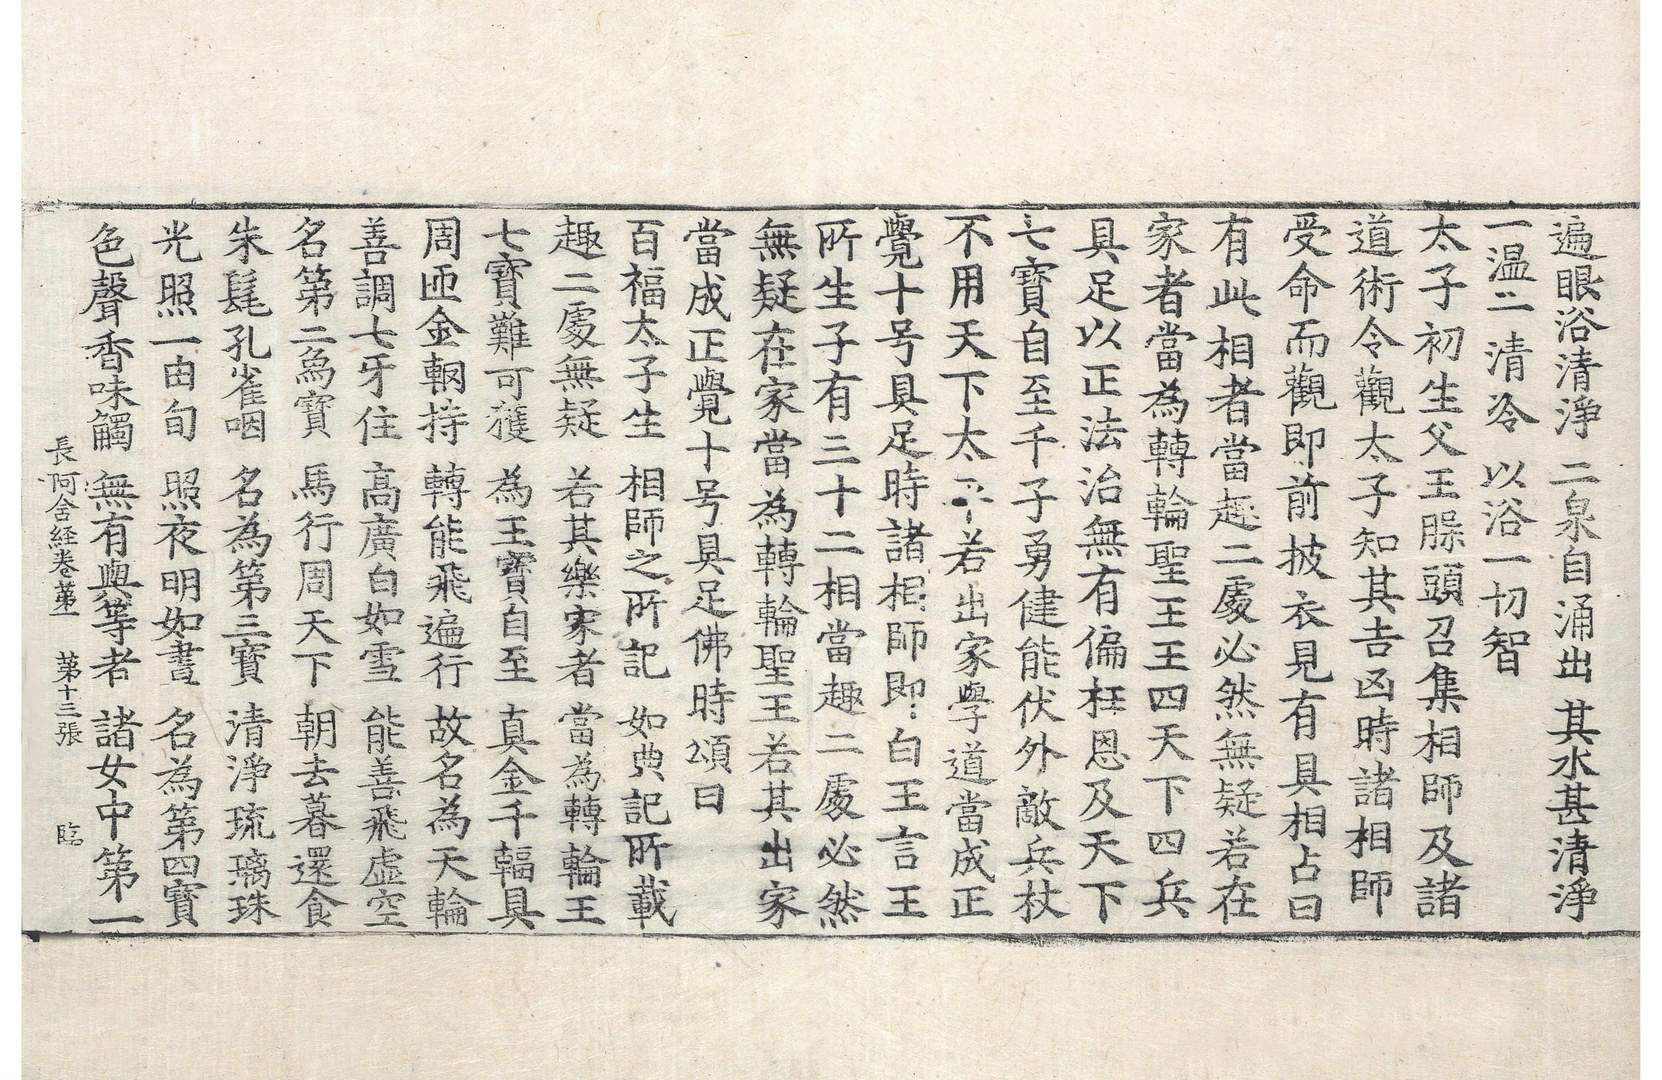 遍眼浴清淨　二泉自涌出　其水甚清淨
一温二清冷　以浴一切智
太子初生父王𦡀頭召集相師及諸
道術令觀太子知其吉凶時諸相師
受命而觀即前披衣見有具相占曰
有此相者當趣二處必然無疑若在
家者當為轉輪聖王王四天下四兵
具足以正法治無有偏枉恩及天下
七寶自至千子勇健能伏外敵兵杖
不用天下太平若出家學道當成正
覺十号具足時諸相師即白王言王
所生子有三十二相當趣二處必然
無疑在家當為轉輪聖王若其出家
當成正覺十号具足佛時頌曰
百福太子生　相師之所記　如典記所載
趣二處無疑　若其樂家者　當為轉輪王
七寶難可獲　為王寶自至　真金千輻具
周匝金輞持　轉能飛遍行　故名為天輪
善調七牙住　高廣白如雪　能善飛虛空
名第二為寶　馬行周天下　朝去暮還食
朱髦孔雀咽　名為第三寶　清淨琉璃珠
光照一由旬　照夜明如晝　名為第四寶
色聲香味觸　無有與等者　諸女中第一
長阿含經卷第一　第十三張　臨